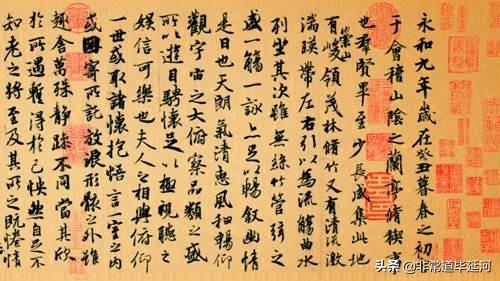 永和九年歲在癸丑暮春之初
于會稽山陰之蘭亭脩稧事
也羣賢畢至少長咸集此地
有崇山峻領茂林脩竹又有清流激
湍暎帶左右引以為流觴曲水
列坐其次雖無絲竹管弦之
盛一觴一詠亦足以暢敘幽情
是日也天朗氣清惠風和暢仰
觀宇宙之大俯察品類之盛
所以遊目騁懷足以極視聽之
娛信可樂也夫人之相與俯仰
一世或取諸懷抱悟言一室之內
或因寄所託放浪形骸之外雖
趣舍萬殊靜躁不同當其欣
於所遇蹔得於己怏然自足不
知老之將至及其所之既惓情
头条 @非常道毕延河